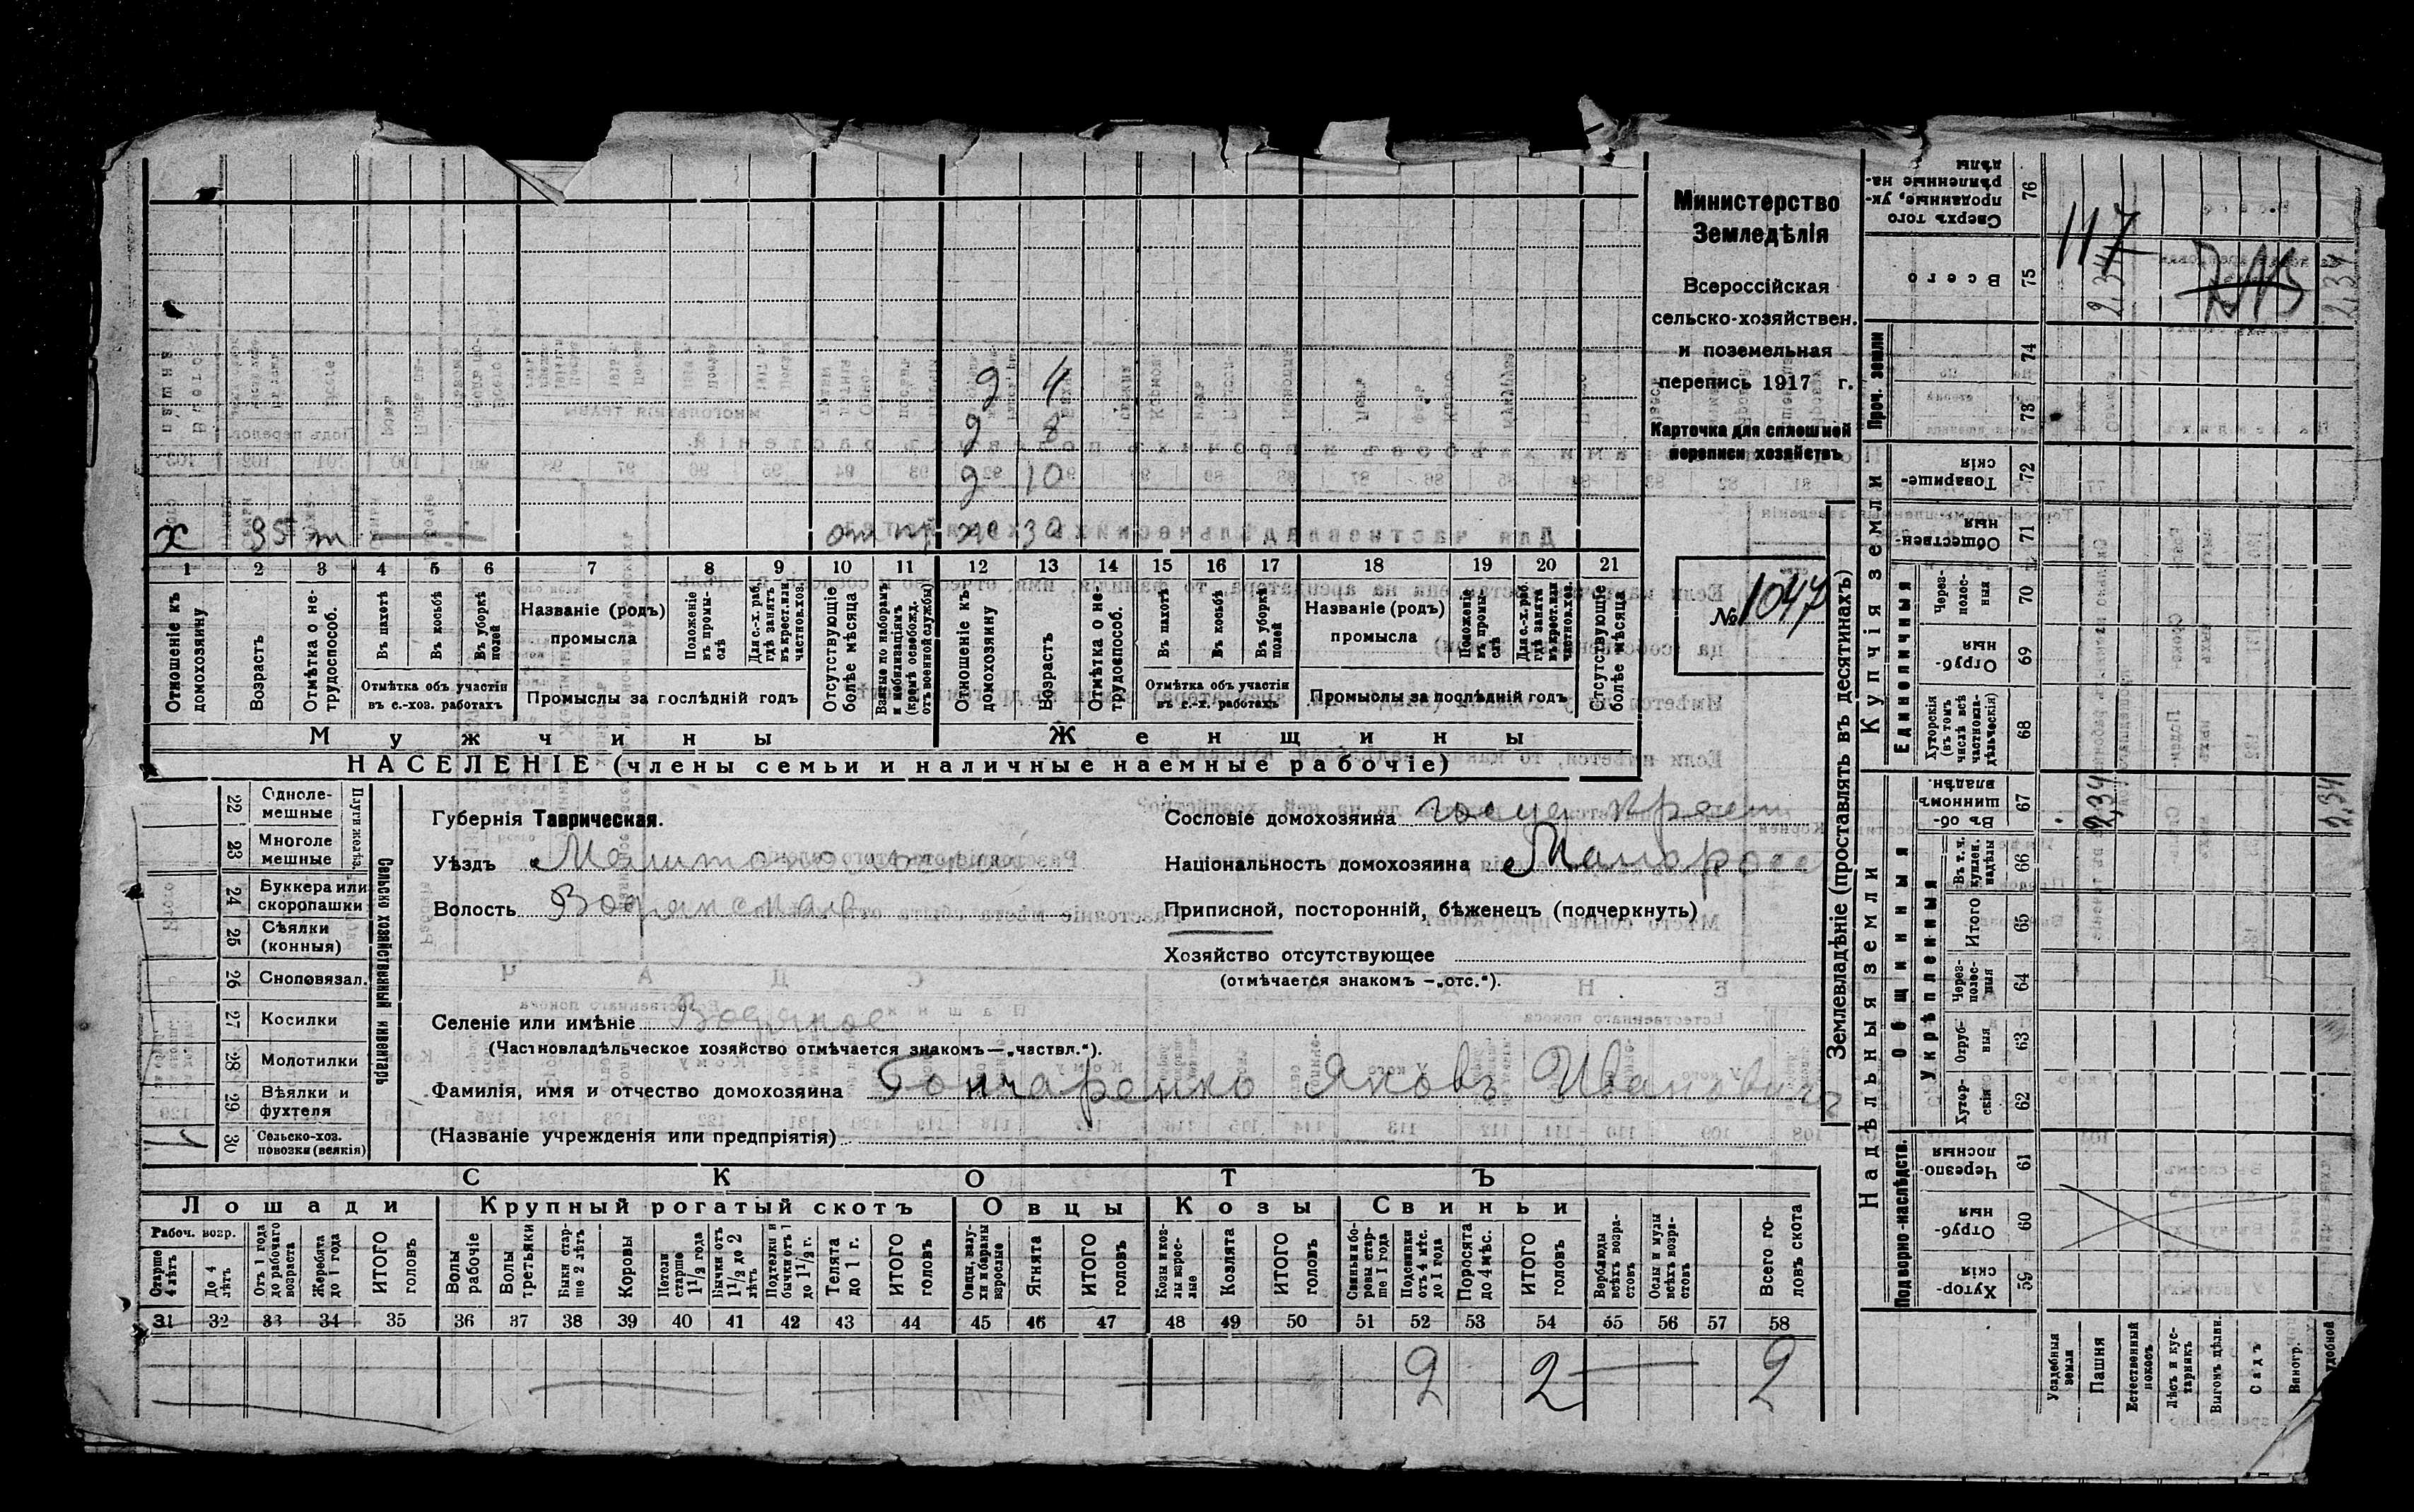 Министерство
Земледѣлія
Всероссійская
сельско-хозяйствен.
и поземельная
перепись 1917 г.
Карточка для сплошной
переписи хозяйствъ
№ 1047
9 4
9 8
9 10
х 35
ж 30
1 2 3 4 5 6 7 8 9 10 11 12 13 14 15 16 17 18 19 20 21
Отношеніе къ домохозяину
Возрастъ
Отмѣтка о не-трудоспособ.
Въ пахотѣ
Въ косьбѣ
Въ уборкѣ полей
Отмѣтка объ участіи въ с.-хоз. работахъ
Названіе (родъ) промысла
Положеніе въ промы-слѣ
Для с.-х. раб. гдѣ занятъ въ крест. или частнов. хоз.
Промыслы за послѣдній годъ
Отсутствующіе болѣе мѣсяца
Взятые по наборамъ и мобилизаціямъ (кромѣ освобожд. отъ военной службы)
Отношеніе къ домохозяину
Возрастъ
Отмѣтка о не-трудоспособ.
Въ пахотѣ
Въ косьбѣ
Въ уборкѣ полей
Отмѣтка объ участіи въ с.-х. работахъ
Названіе (родъ) промысла
Положеніе въ промы-слѣ
Для с.-х. раб. гдѣ занята въ крест. или частно.хоз.
Промыслы за послѣдній годъ
Отсутствующіе болѣе мѣсяца
Мужчины
Женщины
НАСЕЛЕНІЕ (члены семьи и наличные наемные рабочіе)
22 Одноле-мешные
23 Многоле мешные
Плуги желѣз.
24 Буккера или скоропашки
25 Сѣялки (конныя)
26 Сноповязал.
27 Косилки
28 Молотилки
29 Вѣялки и фухтеля
30 Сельско-хоз. повозки (всякія)
1
Сельско хозяйственный инвентарь
Губернія Таврическая.
Уѣздъ Мелитопольскій
Волость Водянская
Селеніе или имѣніе Водяное
(Частновладѣльческое хозяйство отмѣчается знакомъ—„частвл.“).
Фамилія, имя и отчество домохозяина Гончаренко Яковъ Ивановичъ
(Названіе учрежденія или предпріятія)
Сословіе домохозяина госуд. крест
Національность домохозяина Малоросс
Приписной, посторонній, бѣженецъ (подчеркнуть)
Хозяйство отсутствующее
(отмѣчается знакомъ —„отс.“).
СКОТЪ
Лошади
Крупный рогатый скотъ
Овцы
Козы
Свиньи
Рабоч. возр.
Старше 4 лѣтъ
До 4 лѣтъ
Отъ 1 года до рабочаго возраста
Жеребята до 1 года
ИТОГО головъ
Волы рабочіе
Волы третьяки
Быки стар-ше 2 лѣтъ
Коровы
Нетели старше 1 1/2 года
Бычки отъ 1 1/2 до 2 лѣтъ
Подтелки и бычки отъ 1 до 1 1/2 г.
Телята до 1 г.
ИТОГО головъ
Овцы, валу-хи и бараны взрослые
Ягнята
ИТОГО головъ
Козы и коз-лы взрос-лые
Козлята
ИТОГО головъ
Свиньи и бо-ровы стар-ше 1 года
Подсвинки отъ 4 мѣс. до 1 года
Поросята до 4 мѣс.
ИТОГО головъ
Верблюды всѣхъ возра-стовъ
Ослы и мулы всѣхъ возра-стовъ
Всего го-ловъ скота
31 32 33 34 35 36 37 38 39 40 41 42 43 44 45 46 47 48 49 50 51 52 53 54 55 56 57 58
2 2 2
Землевладѣніе (проставлять въ десятинахъ)
Сверхъ того проданные, ук-рѣпленные на-дѣлы 76
117
Всего 75
2,34
2,34
Проч. земли
74
73
Купчія земли
Товарище-скія 72
Обществен-ныя 71
Единоличныя
Через-полос-ныя 70
Отруб-ныя 69
Хуторскія (въ томъ числѣ всѣ частновла-дѣльческія) 68
Надѣльныя земли
Общинныя
Въ об-щинномъ владѣн. 67
2,34
2,34
Укрѣпленныя
Въ т. ч. куплен. надѣлы 66
Итого 65
Через-полос-ныя 64
Отруб-ныя 63
Хутор-скія 62
Подворно-наслѣдств.
Черезпо-лосныя 61
Отруб-ныя 60
Хутор-скія 59
Усадебныя земли
Пашня
Естественный покосъ
Лѣсъ и кус-тарникъ
Выгонъ цѣлин.
Садъ
Виногр.
удобной